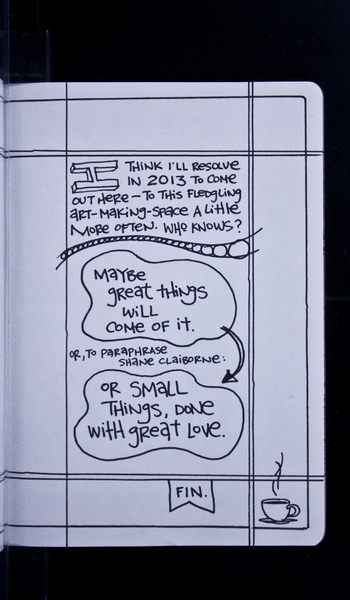 I THINK I'LL RESOLVE
IN 2013 TO COME
OUT HERE – TO THIS FLEDGLING
ART-MAKING-SPACE A LITTLE
MORE OFTEN. WHO KNOWS?
MAYBE
great tHiNgS
WiLL
COME OF it.
OR, TO PARAPHRASE
SHANE CLAIBORNE:
OR SMALL
THINGS, DONE
WitH great LOVE.
FIN.